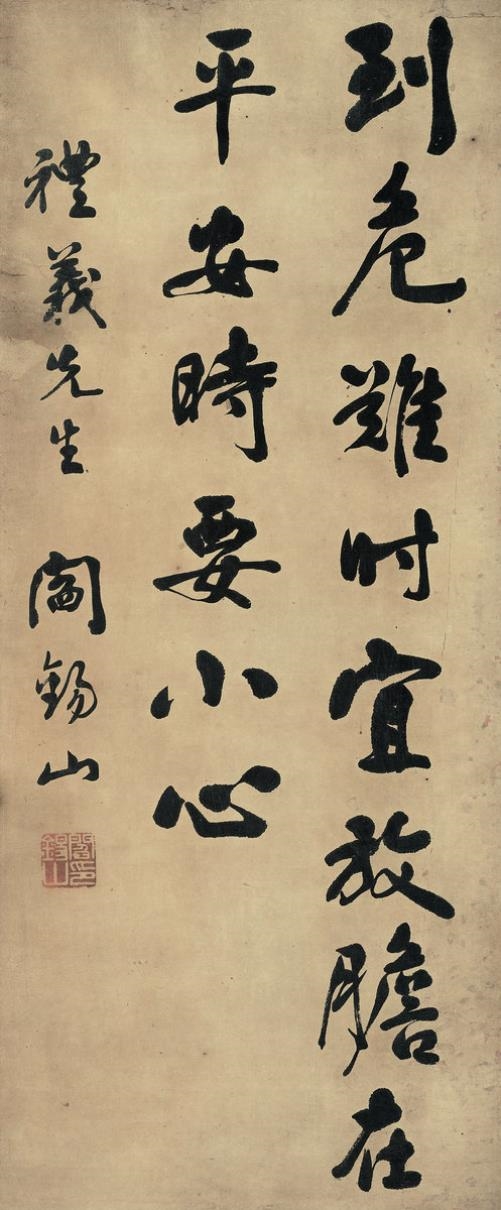 到危難时宜放膽在
平安時要小心
禮義先生 閻錫山
閻錫山印